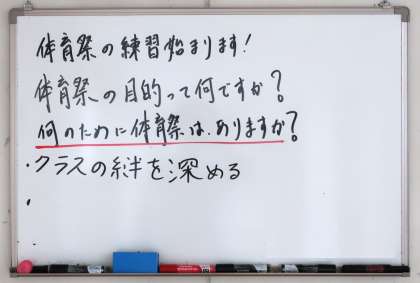 体育祭の練習始まります!
体育祭の目的って何ですか?
何のために体育祭は、ありますか?
・クラスの絆を深める
・